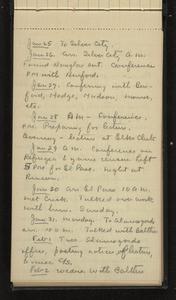 Jan 25. To Silver City.
Jan 26. Arr. Silver City A.M.
Found Douglas out. Conference
PM with Benford.
Jan 27. Conferring with Ben-
ford, Hodge, Hudson,
etc.
Jan 28 A.M. - Conferences.
P.M. Preparing for lecture.
Evening - lecture at Elks Club.
Jan 29 A.M. Conference on
Refuges & game census. Left
5 PM for El Paso. Night at
Rincon.
Jan 30 Arr. El Paso 10 A.M.
Met Tusk. Talked over work
with him. Sunday.
Jan 31. Monday. To Alamogordo
arr. 10 A.M. Talked with Balthis
Feb 1 Tues. Alamogordo
office, posting notices of lecture,
etc.
Feb 2 Wednes. With Balthis